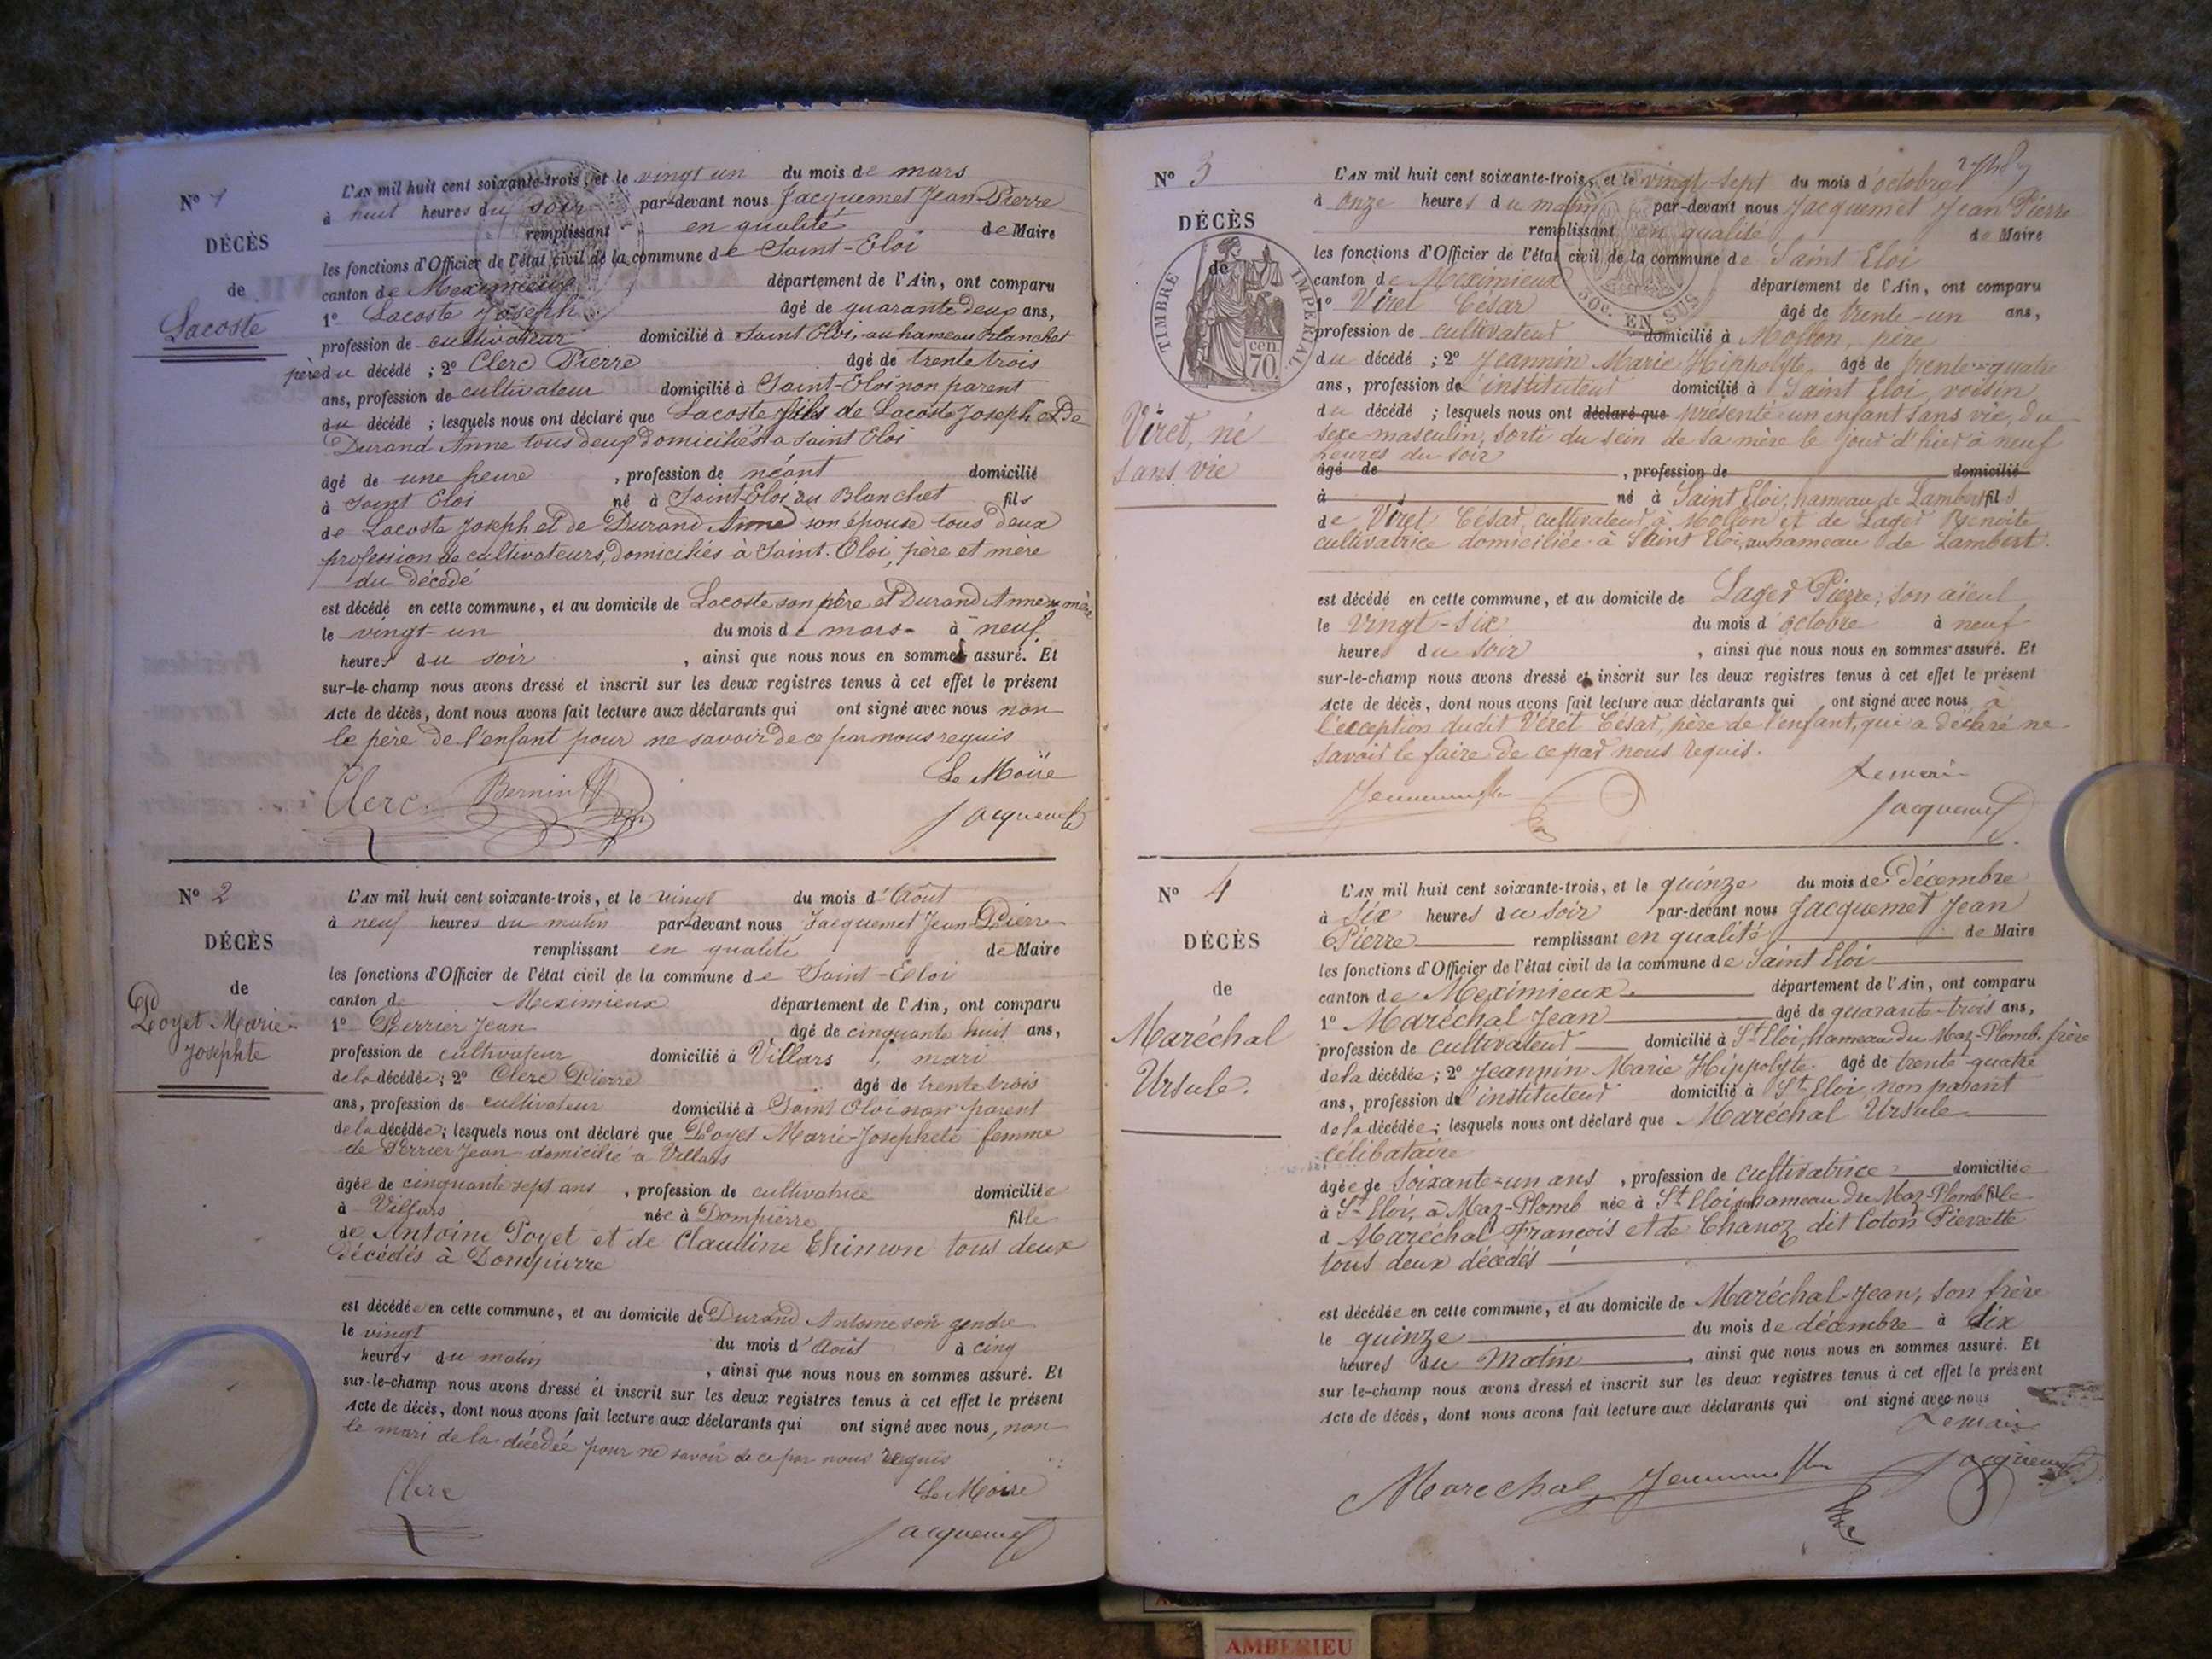 N° 1
DÉCÈS
de
Lacoste
L'AN mil huit cent soixante-trois, et le vingt un du mois de mars
à huit heures du soir par-devant nous Jacquemet Jean-Pierre
remplissant en qualité de Maire
les fonctions d'Officier de l'état civil de la commune de Saint-Eloi
canton de Meximieux département de l'Ain, ont comparu
1° Lacoste Joseph âgé de quarante deux ans,
profession de cultivateur domicilié à Saint Eloi, au hameau Blanchet
père du décédé ; 2° Clerc Pierre âgé de trente trois
ans, profession de cultivateur domicilié à Saint-Eloi non parent
du décédé ; lesquels nous ont déclaré que Lacoste fils de Lacoste Joseph et De
Durand Anne tous deux domiciliés à Saint Eloi
âgé de une heure , profession de néant domicilié
à Saint Eloi né à Saint Eloi au Blanchet fils
de Lacoste Joseph et de Durand Anne son épouse tous deux
profession de cultivateurs, domiciliés à Saint-Eloi, père et mère
du décédé
est décédé en cette commune, et au domicile de Lacoste son père et Durand Anne sa mère
le vingt-un du mois de mars à neuf
heures du soir , ainsi que nous nous en sommes assuré. Et
sur-le-champ nous avons dressé et inscrit sur les deux registres tenus à cet effet le présent
Acte de décès, dont nous avons fait lecture aux déclarants qui ont signé avec nous non
le père de l'enfant pour ne savoir de ce par nous requis
Clerc Bernin Le Maire
Jacquemet
N° 2
DÉCÈS
de
Poyet Marie-
Josephte
L'AN mil huit cent soixante-trois, et le vingt du mois d'Août
à neuf heures du matin par-devant nous Jacquemet Jean Pierre
remplissant en qualité de Maire
les fonctions d'Officier de l'état civil de la commune de Saint-Eloi
canton de Meximieux département de l'Ain, ont comparu
1° Perrier Jean âgé de cinquante huit ans,
profession de cultivateur domicilié à Villars, mari
de la décédée; 2° Clerc Pierre âgé de trente trois
ans, profession de cultivateur domicilié à Saint Eloi non parent
de la décédée; lesquels nous ont déclaré que Poyet Marie-Josephete femme
de Perrier Jean domicilié à Villars
âgée de cinquante sept ans , profession de cultivatrice domiciliée
à Villars née à Dompierre fille
de Antoine Poyet et de Claudine tous deux
décédés à Dompierre
est décédée en cette commune, et au domicile de Durand Antoine son gendre
le vingt du mois d'Août à cinq
heures du matin , ainsi que nous nous en sommes assuré. Et
sur-le-champ nous avons dressé et inscrit sur les deux registres tenus à cet effet le présent
Acte de décès, dont nous avons fait lecture aux déclarants qui ont signé avec nous, non
le mari de la décédée pour ne savoir de ce par nous requis
Clerc Le Maire
Jacquemet
N° 3
DÉCÈS
de
TIMBRE IMPÉRIAL
cen. 70
Viret, né
sans vie
L'AN mil huit cent soixante-trois, et le vingt-sept du mois d'octobre
à onze heures du matin par-devant nous Jacquemet Jean Pierre
remplissant en qualité de Maire
les fonctions d'Officier de l'état civil de la commune de Saint Eloi
canton de Meximieux département de l'Ain, ont comparu
50c. EN SUS
1° Viret César âgé de trente-un ans,
profession de cultivateur domicilié à Mollon, père
du décédé ; 2° Jeannin Marie Hippolyte, âgé de trente-quatre
ans, profession de l'instituteur domicilié à Saint Eloi, voisin
du décédé ; lesquels nous ont déclaré que présenté un enfant sans vie, du
sexe masculin, sorti du sein de sa mère le jour d'hier à neuf
heures du soir
âgé de , profession de domicilié
à né à Saint Eloi, hameau de Lambert fils
de Viret César, cultivateur à Mollon et de Lager Benoite
cultivatrice domiciliée à Saint Eloi, au hameau de Lambert.
est décédé en cette commune, et au domicile de Lager Pierre, son aïeul
le vingt-six du mois d'octobre à neuf
heures du soir , ainsi que nous nous en sommes assuré. Et
sur-le-champ nous avons dressé et inscrit sur les deux registres tenus à cet effet le présent
Acte de décès, dont nous avons fait lecture aux déclarants qui ont signé avec nous à
l'exception dudit Viret César, père de l'enfant, qui a déclaré ne
savoir le faire de ce par nous requis.
Le maire
Jacquemet
N° 4
DÉCÈS
de
Maréchal
Ursule.
L'AN mil huit cent soixante-trois, et le quinze du mois de Décembre
à six heures du soir par-devant nous Jacquemet Jean
Pierre remplissant en qualité de Maire
les fonctions d'Officier de l'état civil de la commune de Saint Eloi
canton de Meximieux département de l'Ain, ont comparu
1° Maréchal Jean âgé de quarante-trois ans,
profession de cultivateur domicilié à St Eloi, hameau du Maz-Plomb, frère
de la décédée; 2° Jeannin Marie Hippolyte âgé de trente-quatre
ans, profession de instituteur domicilié à St Eloi, non parent
de la décédée; lesquels nous ont déclaré que Maréchal Ursule
célibataire
âgée de soixante-un ans , profession de cultivatrice domiciliée
à St Eloi, à Maz-Plomb née à St Eloi, au hameau du Maz-Plomb fille
d Maréchal François et de Chanoz dit Coton Pierrette
tous deux décédés
est décédée en cette commune, et au domicile de Maréchal Jean, son frère
le quinze du mois de décembre à dix
heures du matin , ainsi que nous nous en sommes assuré. Et
sur le-champ nous avons dressé et inscrit sur les deux registres tenus à cet effet le présent
Acte de décès, dont nous avons fait lecture aux déclarants qui ont signé avec nous
Le maire
Marechal Jacquemet
AMBERIEU